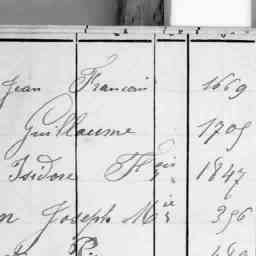 Jean François 1669
Guillaume 1709
Isidore Fçois 1847
Joseph Mie 396